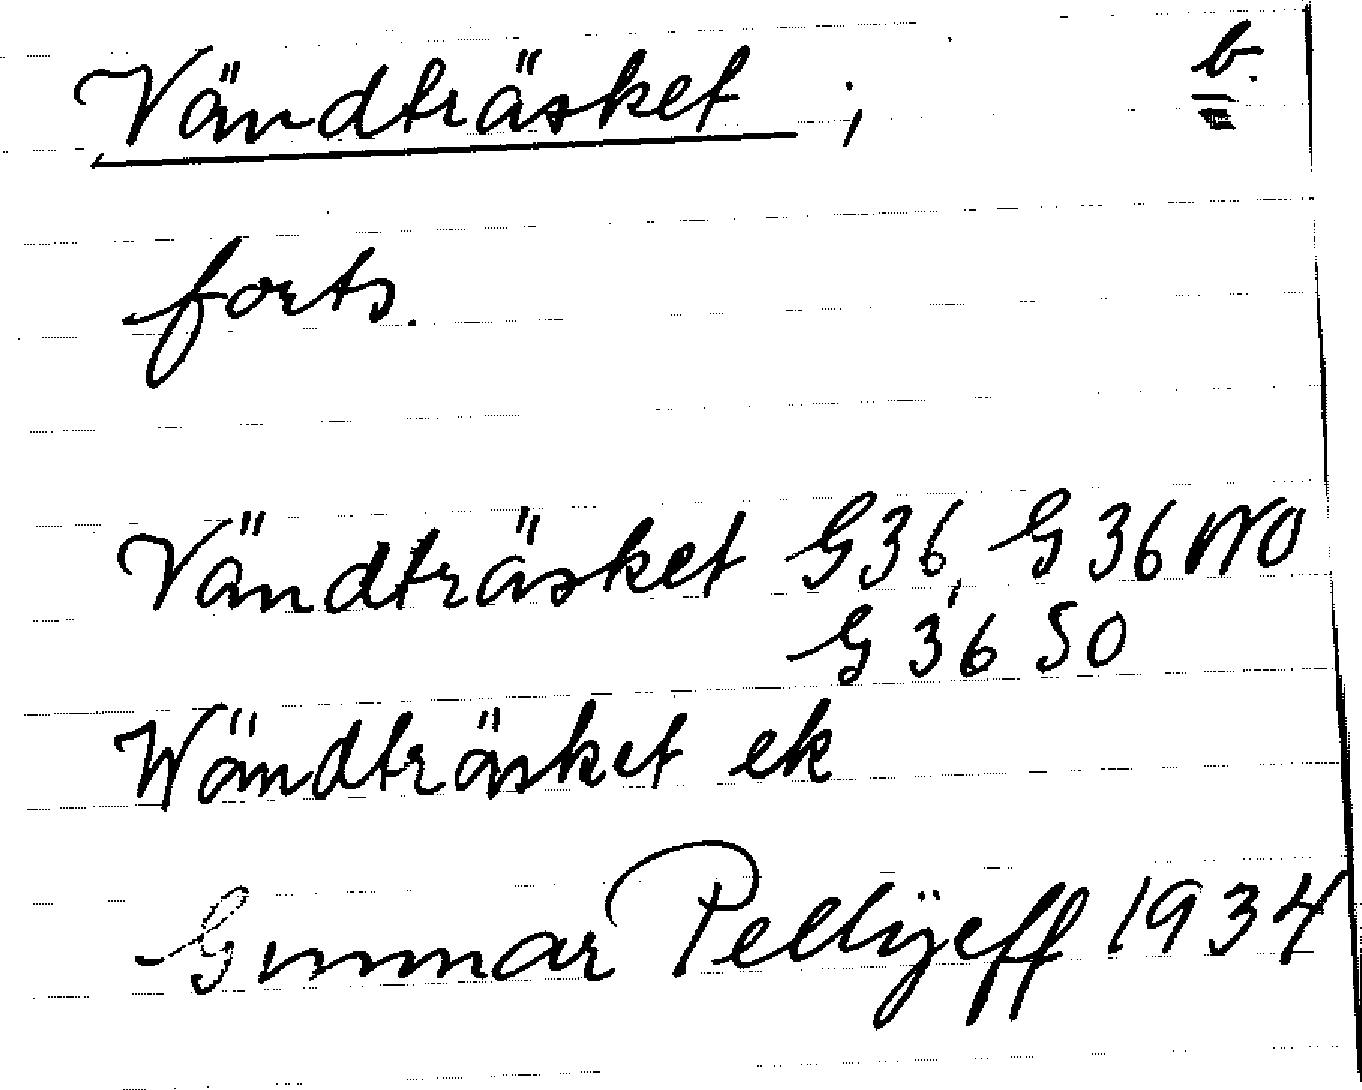 Vändträsket ; b.
forts.
Vändträsket G36, G36 NO
G36 SO
Wändträsket ek
Gunnar Pellijeff 1934